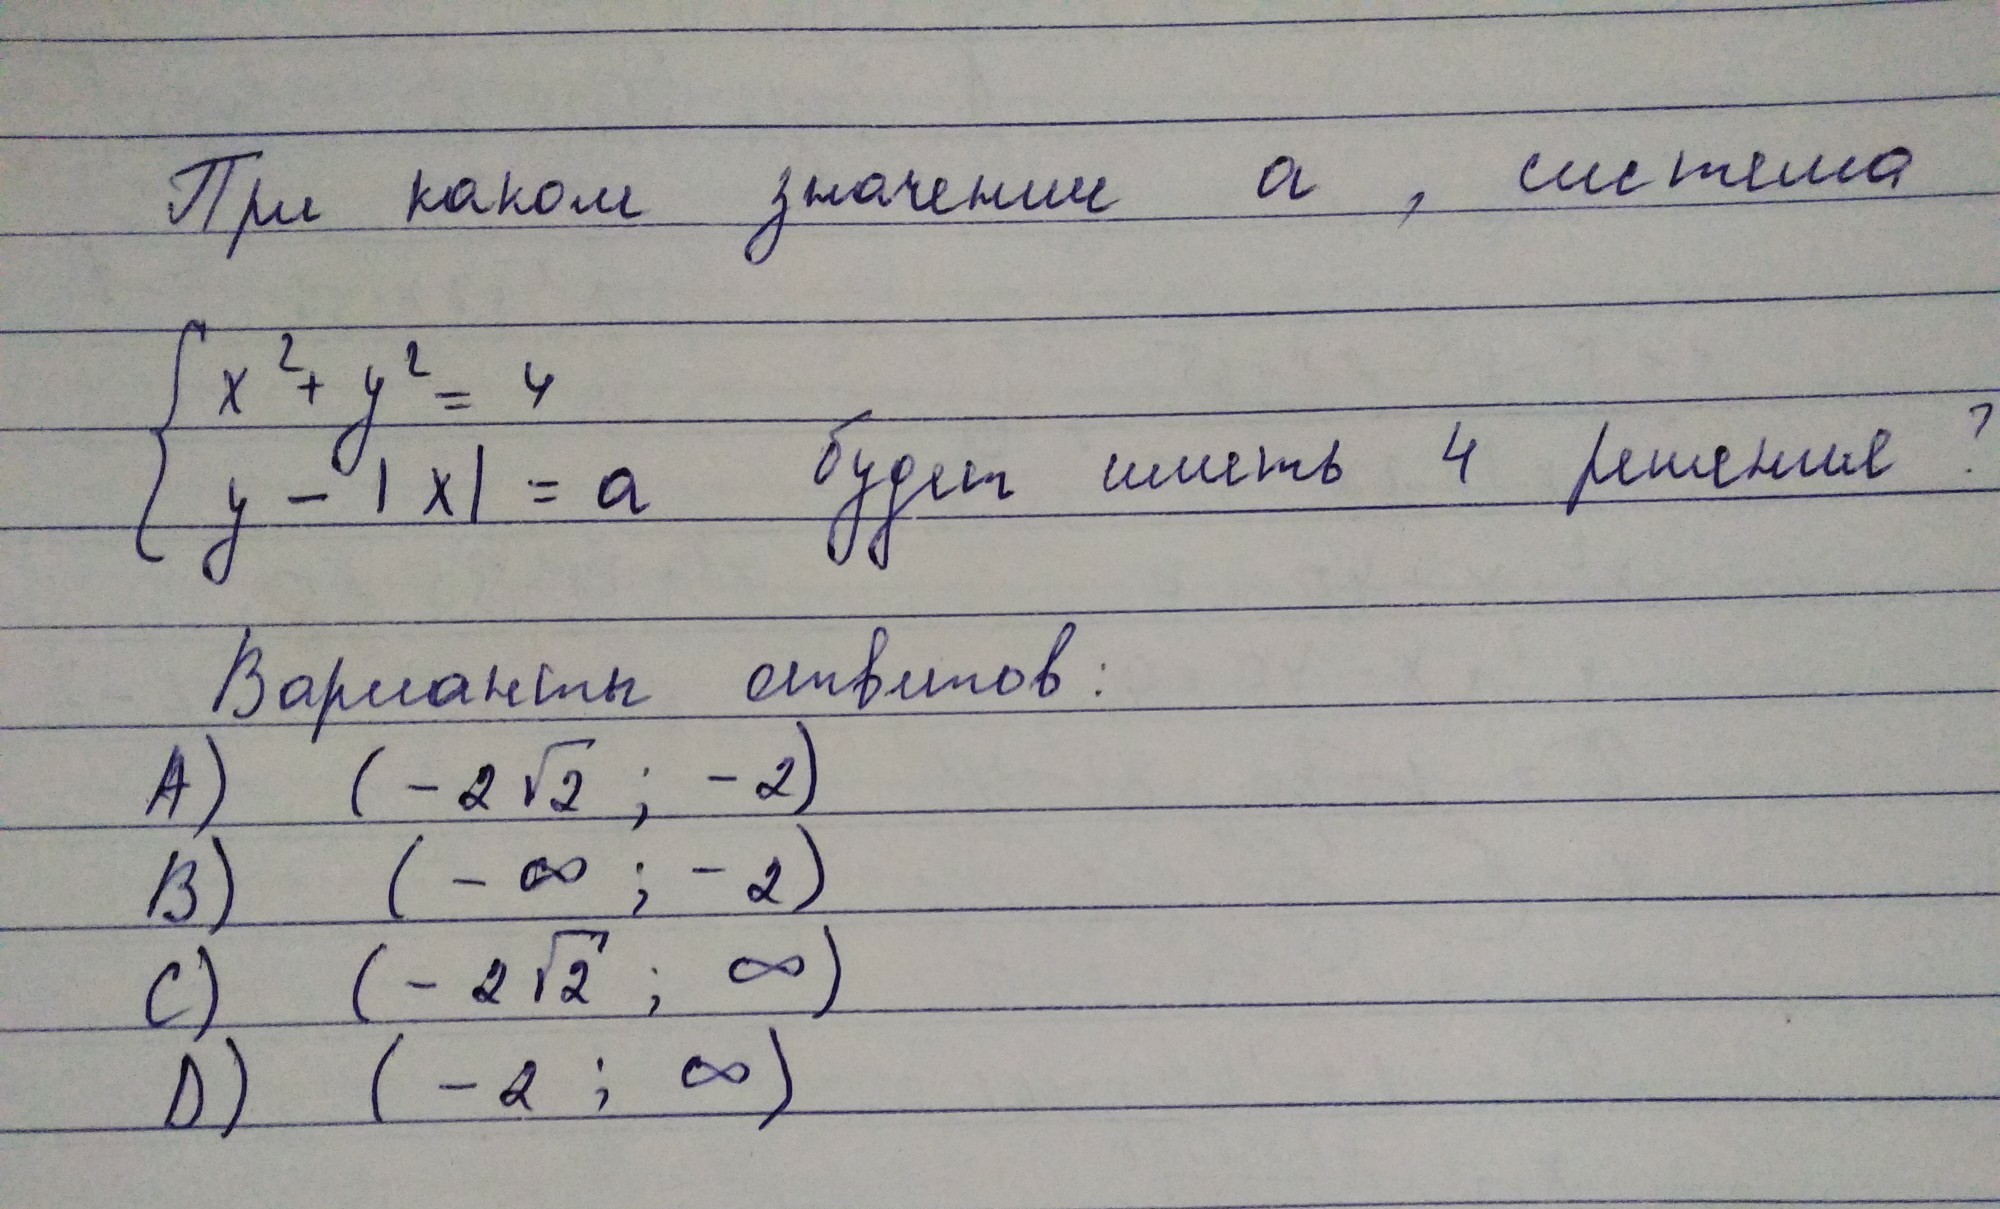 При каком значении a , система
x² + y² = 4
y - |x| = a будет иметь 4 решение ?
Варианты ответов:
A) (-2√2 ; -2)
B) (-∞ ; -2)
C) (-2√2 ; ∞)
D) (-2 ; ∞)